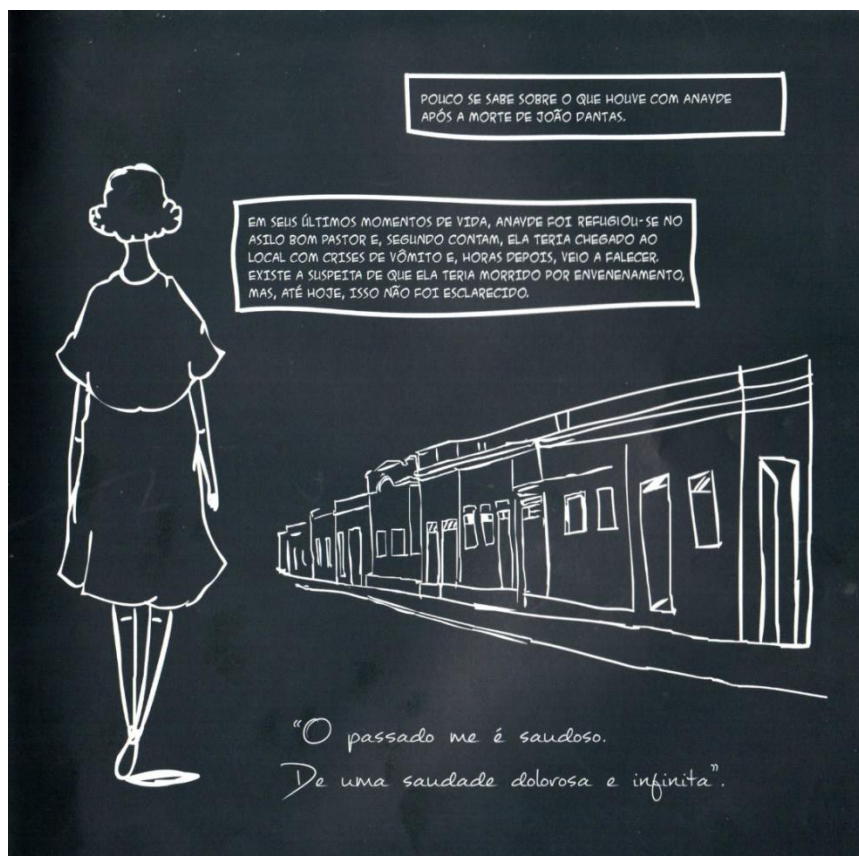 POUCO SE SABE SOBRE O QUE HOUVE COM ANAYDE
APÓS A MORTE DE JOÃO DANTAS.
EM SEUS ÚLTIMOS MOMENTOS DE VIDA, ANAYDE FOI REFUGIOU-SE NO
ASILO BOM PASTOR E, SEGUNDO CONTAM, ELA TERIA CHEGADO AO
LOCAL COM CRISES DE VÔMITO E, HORAS DEPOIS, VEIO A FALECER.
EXISTE A SUSPEITA DE QUE ELA TERIA MORRIDO POR ENVENENAMENTO,
MAS, ATÉ HOJE, ISSO NÃO FOI ESCLARECIDO.
"O passado me é saudoso.
De uma saudade dolorosa e infinita".